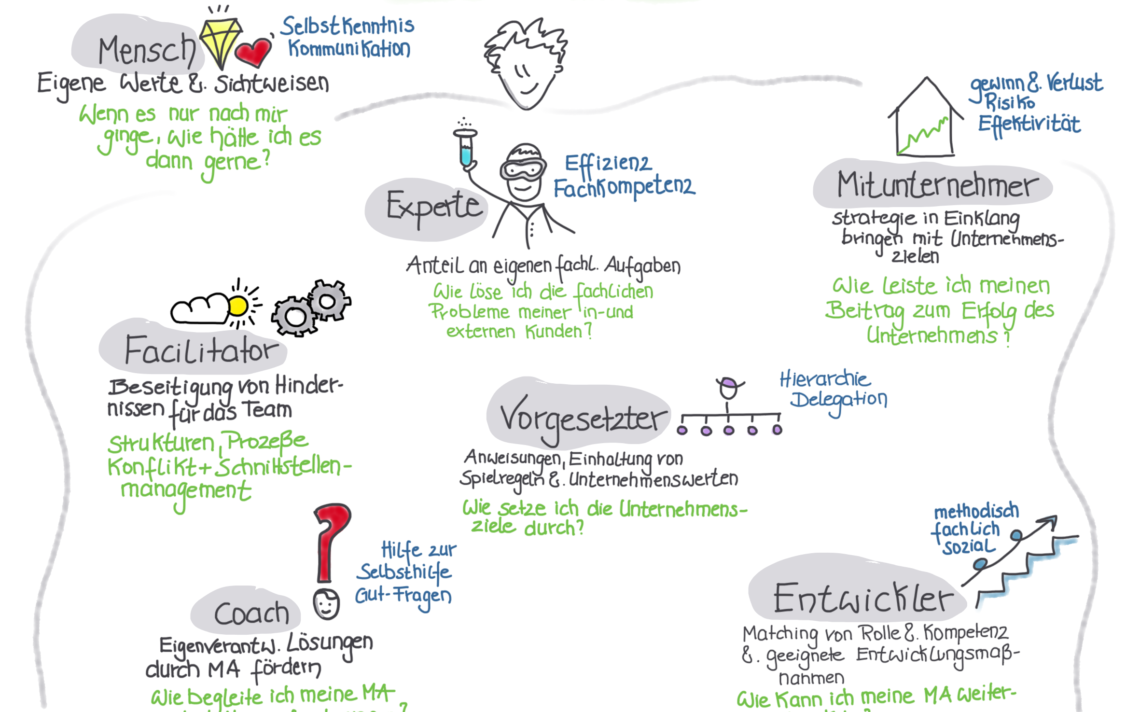 Mensch
Selbstkenntnis
Kommunikation
Eigene Werte & Sichtweisen
Wenn es nur nach mir
ginge, wie hätte ich es
dann gerne?
Experte
Effizienz
Fachkompetenz
Anteil an eigenen fachl. Aufgaben
Wie löse ich die fachlichen
Probleme meiner in-und
externen Kunden?
gewinn & Verlust
Risiko
Effektivität
Mitunternehmer
strategie in Einklang
bringen mit Unternehmens-
zielen
Wie leiste ich meinen
Beitrag zum Erfolg des
Unternehmens?
Facilitator
Beseitigung von Hinder-
nissen für das Team
Strukturen, Prozeße
Konflikt + Schnittstellen-
management
Vorgesetzter
Hierarchie
Delegation
Anweisungen, Einhaltung von
Spielregeln & Unternehmenswerten
Wie setze ich die Unternehmens-
ziele durch?
Coach
Hilfe zur
Selbsthilfe
Gut-Fragen
Eigenverantw. Lösungen
durch MA fördern
Wie begleite ich meine MA
?
methodisch
fachlich
sozial
Entwickler
Matching von Rolle & Kompetenz
& geeignete Entwicklungsmaß-
nahmen
Wie kann ich meine MA weiter-